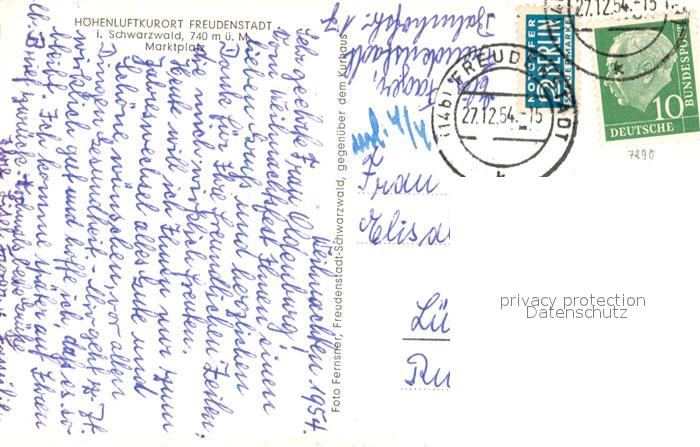 HÖHENLUFTKURORT FREUDENSTADT
i. Schwarzwald, 740 m ü. M.
Marktplatz
Weihnachten 1954.
Sehr geehrte Frau Oldenburg!
Zum Weihnachtsfest Ihnen einen
lieben Gruß und herzlichen
Dank für Ihre freundlichen Zeilen,
die mich wirklich freuten.
Heute will ich Ihnen nur zum
Jahreswechsel alles Gute und
Schöne wünschen, vor allen
Dingen Gesundheit. - Mir geht es z. Zt.
gut und hoffe ich, daß es so
bleibt. Ich komme später auf Ihren
Brief zurück.
Foto Fernsner, Freudenstadt-Schwarzwald, gegenüber dem Kurhaus
Freudenstadt
Bahnhofstr. 17
NOTOPFER
2 BERLIN
STEUERMARKE
(14b) FREUDENSTADT
27.12.54.-15
27.12.54.-15
DEUTSCHE
BUNDESPOST
10
7290
Frau
Elisa
Lü
privacy protection
Datenschutz